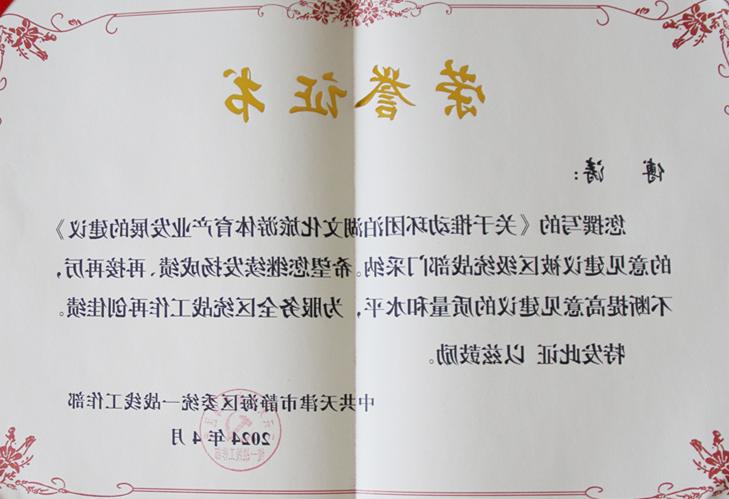 荣誉证书
傅 涛：
您撰写的《关于推动环团泊湖文化旅游体育产业发展的建议》
的意见建议被区级统战部门采纳。希望您继续发扬成绩、再接再厉，
不断提高意见建议的质量和水平，为服务全区统战工作再创佳绩。
特发此证 以兹鼓励。
中共天津市静海区委统一战线工作部
2024 年 4 月